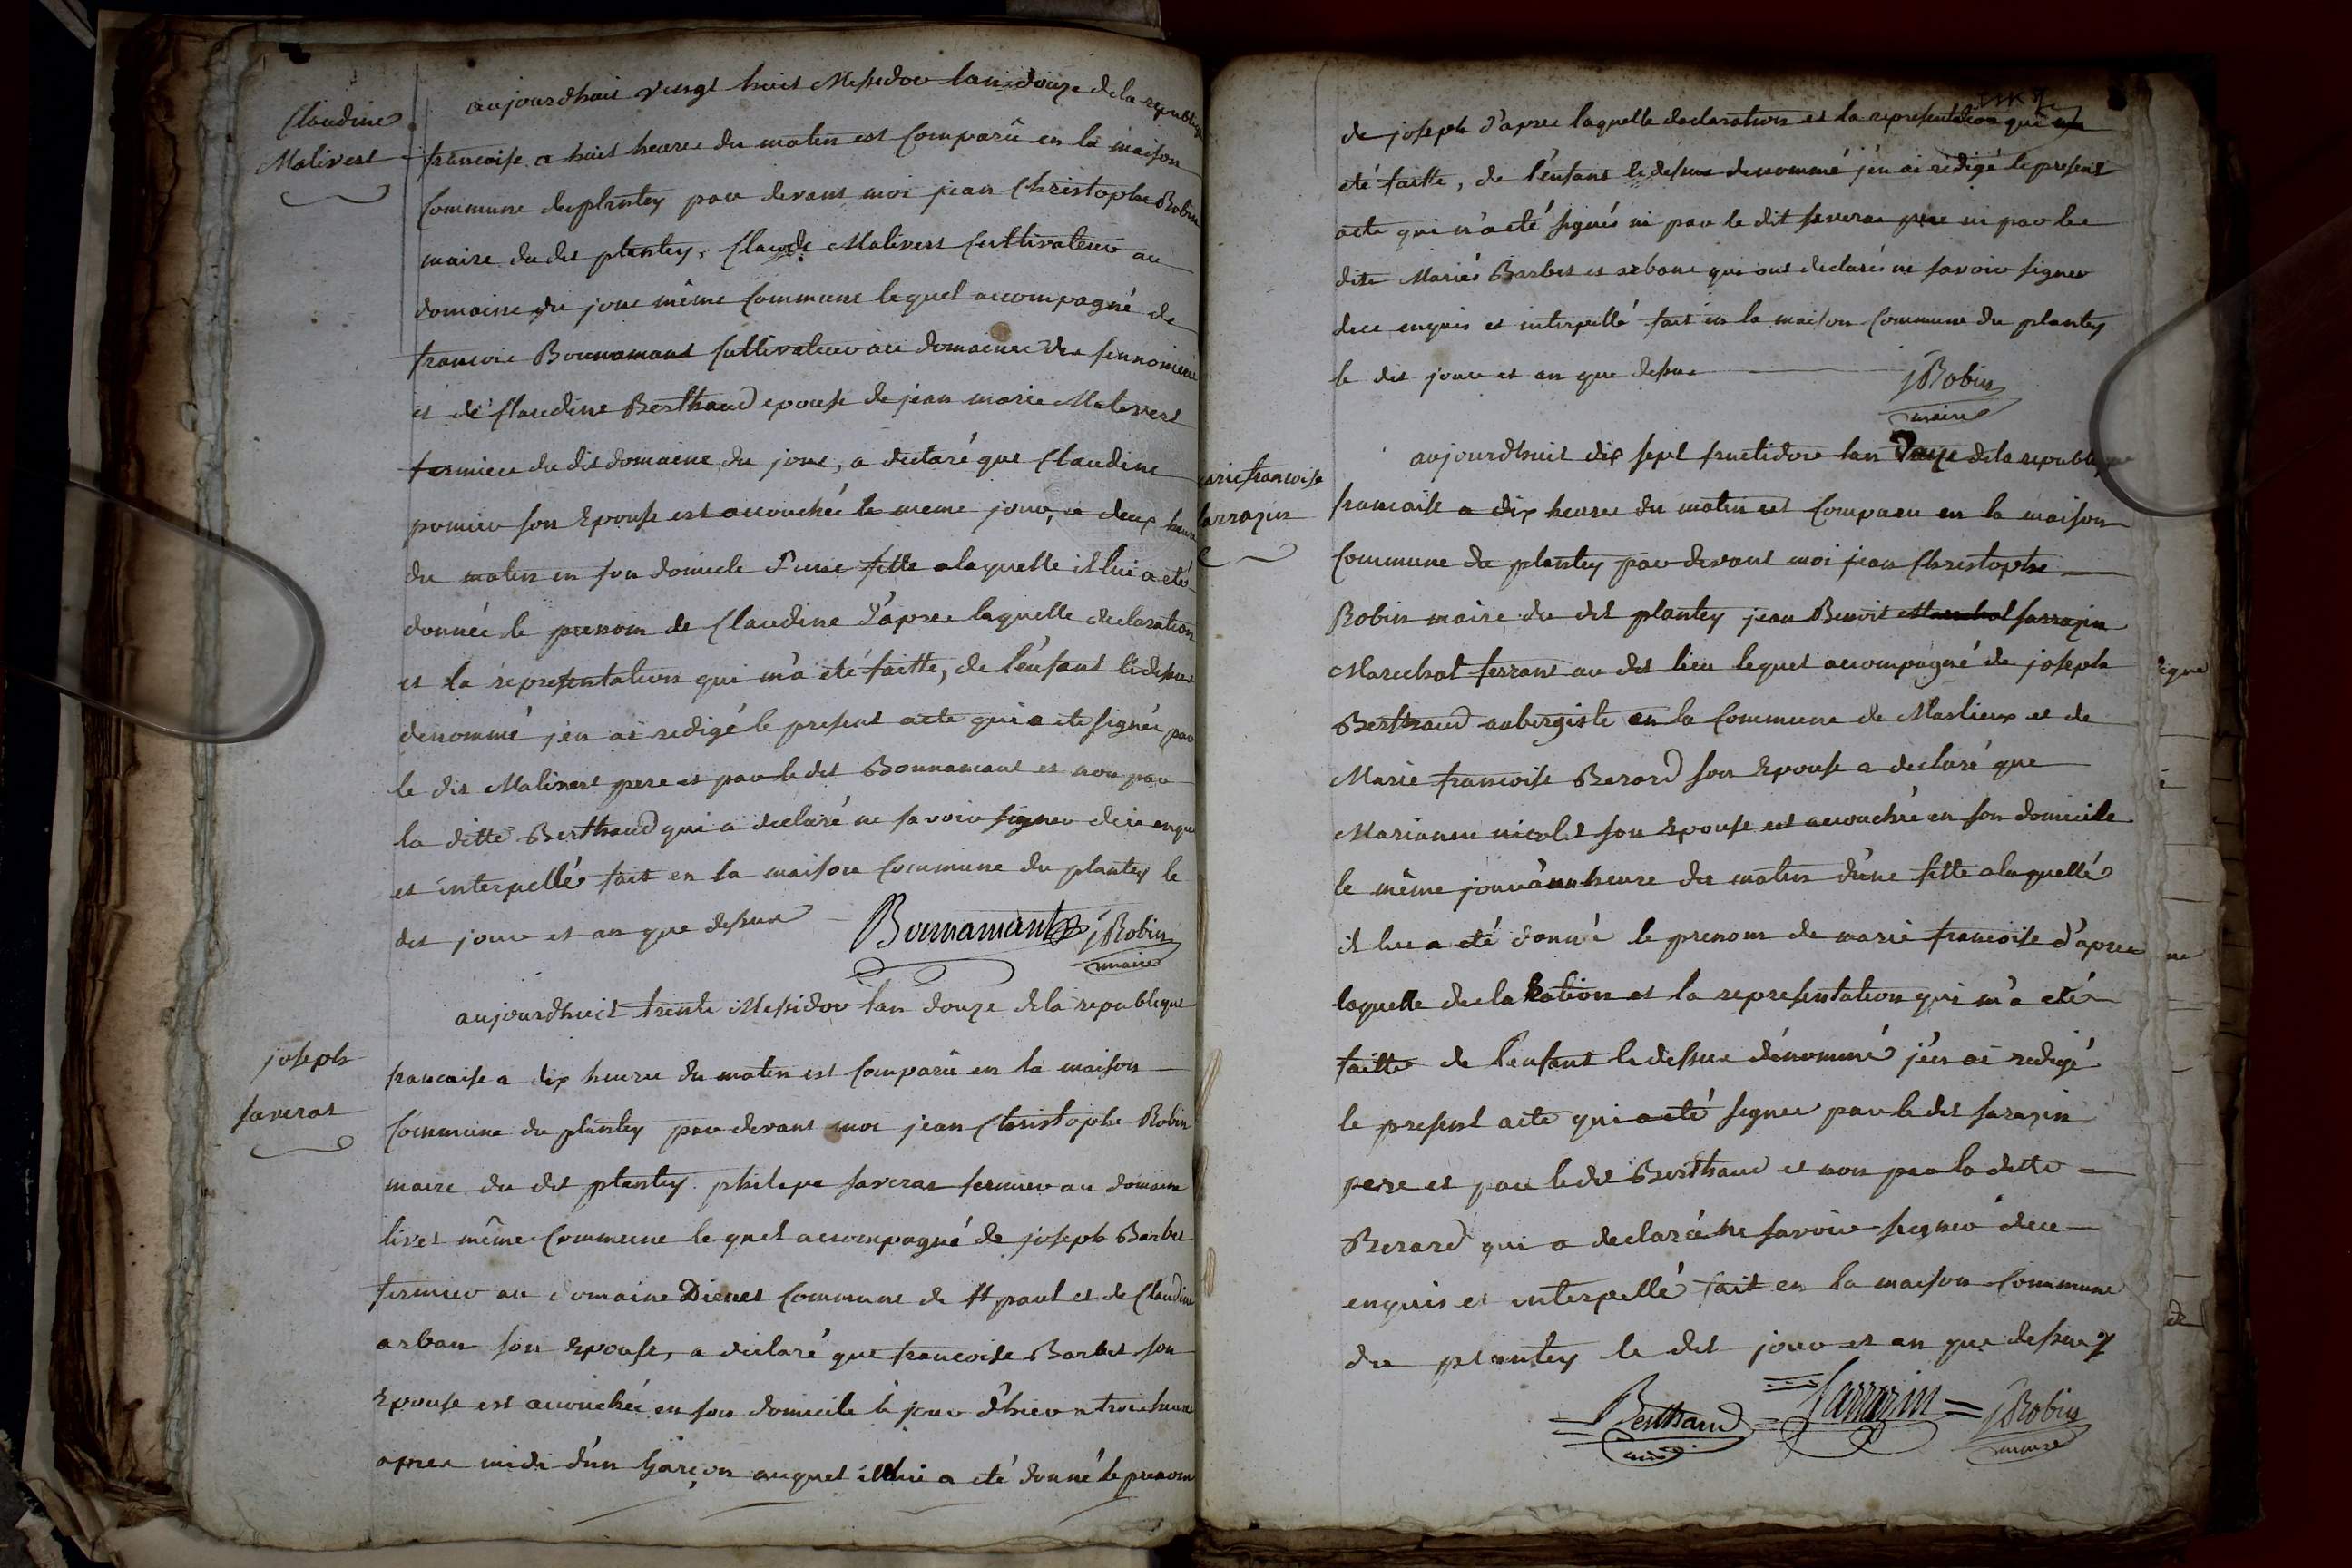 Claudine
Malivert
aujourdhuit vingt huit Messidor lan douze de la republique
francaise a huit heures du matin est Comparû en la maison
Commune du plantey par devant moi jean Christophe Robin
maire du dit plantey, Claude Malivert Cultivateur au
domaine du jour même Commune lequel accompagné de
francois Bonnamant Cultivateur au domaine des
et de Claudine Berthaud epouse de jean marie Malivert
fermier du dit domaine du jour, a declaré que Claudine
pomier son Epouse est accouchée le meme jour, a deux heures
du matin en son domicile d'une fille a laquelle il lui a eté
donnée le prenom de Claudine d'apres laquelle declaration
et la representation qui m'a eté faitte, de l'enfant cidessus
denommé jen ai redigé le present acte qui a eté signé par
le dit Malivert pere et par le dit Bonnamant et non par
la ditte Berthaud qui a declaré ne savoir signer de ce enquis
et interpellé fait en la maison Commune du plantey le
dit jour et an que dessus
Bonnamant jRobin
maire
joseph
saverat
aujourdhuit trente Messidor lan douze de la republique
francaise a dix heures du matin est Comparû en la maison
Commune du plantey par devant moi jean Christophe Robin
maire du dit plantey philipe saverat fermier au domaine
livet même Commune lequel accompagné de joseph Barbet
fermier au domaine Dienet Commune de St paul et de Claudine
arban son Epouse, a declaré que francoise Barbet son
Epouse est accouchée en son domicile le jour d'hier a trois heures
apres midi d'un Garçon auquel il lui a eté donné le prenom
de joseph d'apres laquelle declaration et la representation qui m'a
eté faitte, de l'enfant cidessus denommé j'en ai redigé le present
acte qui n'a eté signés ni par le dit saverat pere ni par les
dits Mariés Barbet et arbane qui ont declarés ne savoir signer
de ce enquis et interpellé fait en la maison Commune du plantey
le dit jour et an que dessus
jRobin
maire
arie francoise
sarrazin
aujourdhuit dix sept fructidor lan Douze de la republique
francaise a dix heures du matin est Comparu en la maison
Commune du plantey par devant moi jean Christophe
Robin maire du dit plantey jean Benoit Marechal sarrazin
Marechal ferrant au dit lieu lequel accompagné de joseph
Berthaud aubergiste en la Commune de Marlieux et de
Marie francoise Berard son Epouse a declaré que
Marianne nicolet son Epouse est accouchée en son domicile
le même jour a un heure du matin d'une fille a laquelle
il lui a eté donné le prenom de marie francoise d'apres
laquelle declaration et la representation qui m'a eté
faitte de l'enfant cidessus dénommé j'en ai redigé
le present acte qui a eté signer par le dit sarazin
pere et par le dit Berthaud et non par la ditte
Berard qui a declaré ne savoir signer de ce
enquis et interpellé fait en la maison Commune
du plantey le dit jour et an que dessus
Berthaud Sarrazin jRobin
maire